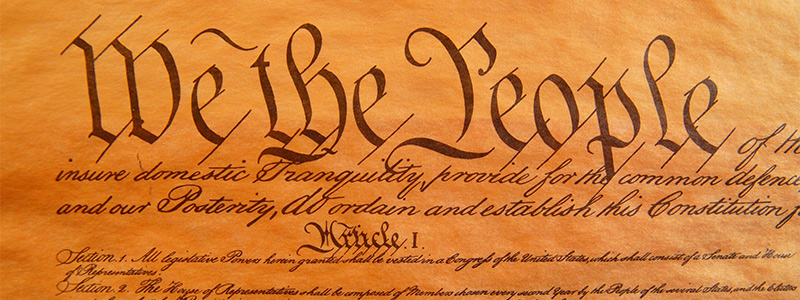 We the People of th
insure domestic Tranquility, provide for the common defence
and our Posterity, do ordain and establish this Constitution f
Article. I.
Section. 1. All legislative Powers herein granted shall be vested in a Congress of the United States, which shall consist of a Senate and House
of Representatives.
Section. 2. The House of Representatives shall be composed of Members chosen every second Year by the People of the several States, and the Electors